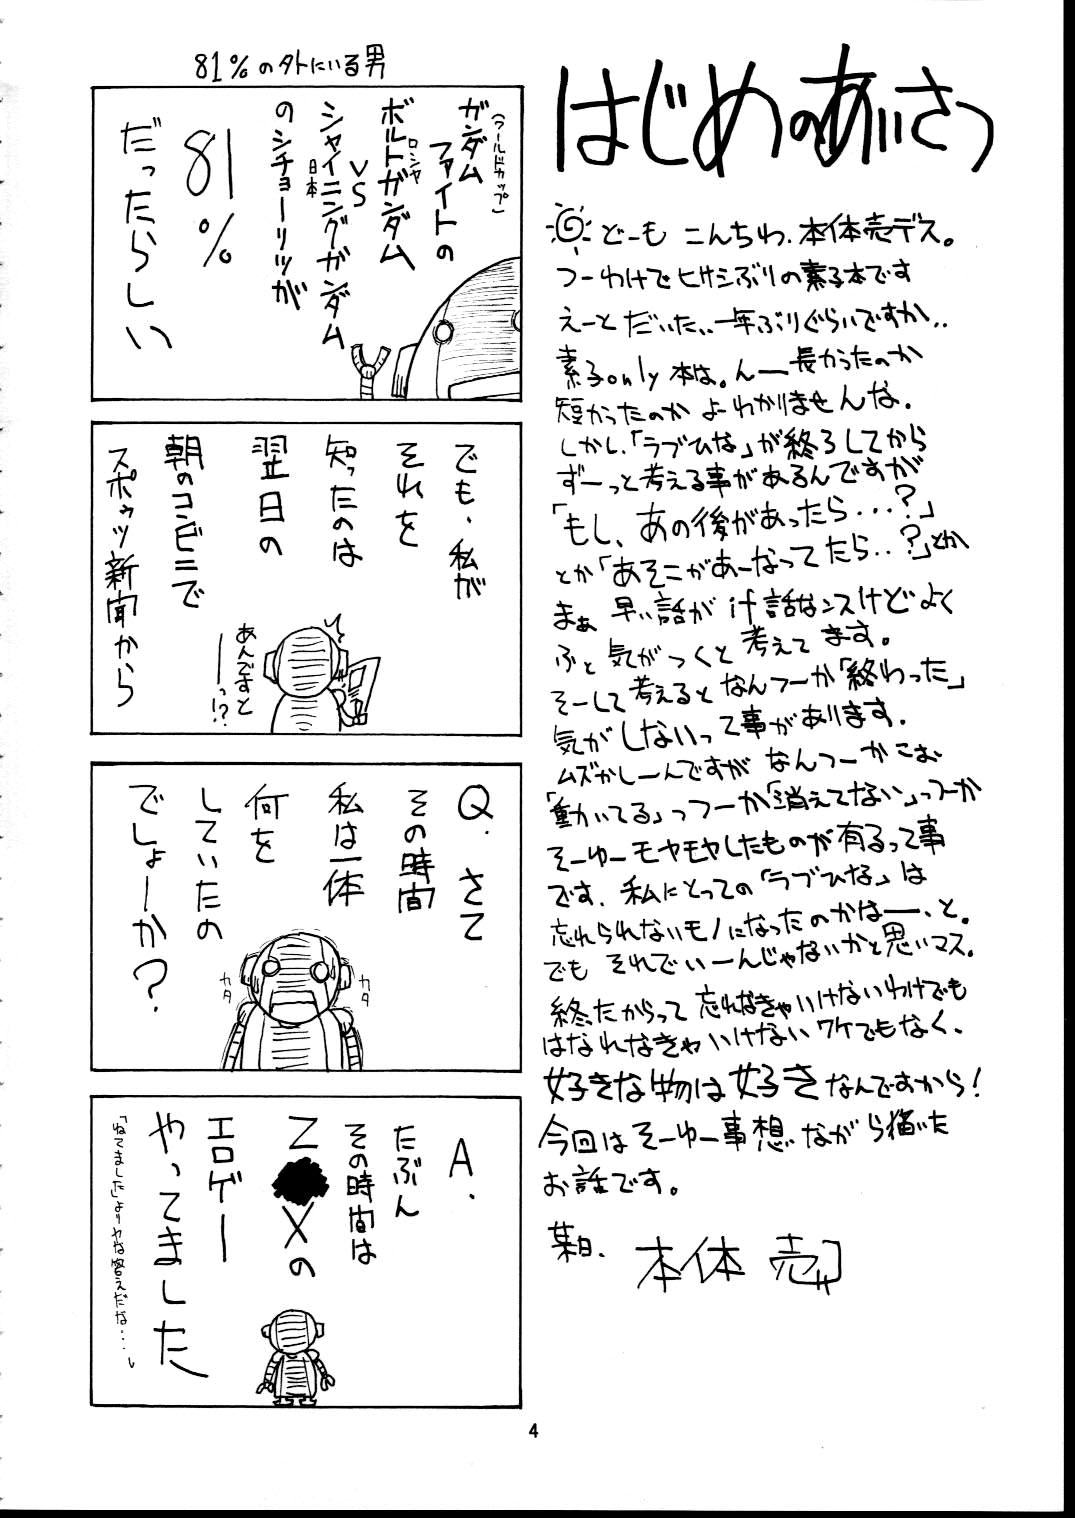 はじめのあいさつ
どーも こんちわ、本体売デス。
つーわけでヒサシぶりの素子本です
えーと だいた、、一年ぶりぐらいですか、、
素子only本は。んー長かったのか
短かったのか よーわかりませんな。
しかし、「ラブひな」が終ろしてから
ずーっと考える事があるんですが
「もし、あの後があったら・・・?」
とか「あそこがあーなってたら・・?」とか
まぁ 早い話が if話なンスけど よく
ふと 気がつくと 考えてます。
そーして考えると なんつーか「終わった」
気がしないって事があります。
ムズかしーんですが なんつーか こお
「動いてる」っつーか「消えてない」っつーか
そーゆーモヤモヤしたものが有るって事
です。私にとっての「ラブひな」は
忘れられないモノになったのかなー、と。
でも それでいーんじゃないかと思いマス。
終ったからって 忘れなきゃいけないわけでも
はなれなきゃいけないワケでもなく、
好きな物は好きなんですから!
今回は そーゆー事想いながら描いた
お話です。
某日、 本体 売
81%の外にいる男
ガンダム
(ワールドカップ)
ファイトの
ボルトガンダム
ロシヤ
VS
シャイニングガンダム
日本
のシチョーリツが
81%
だったらしい
でも、私が
それを
知ったのは
翌日の
朝のコンビニで
スポゥツ新聞から
あんですと
ーーっ!?
Q.さて
その時間
私は一体
何を
していたの
でしょーか?
カタ
カタ
A.
たぶん
その時間は
Z●Xの
エロゲー
やってました
「ねてました」よりヤな答えだな・・・。
4